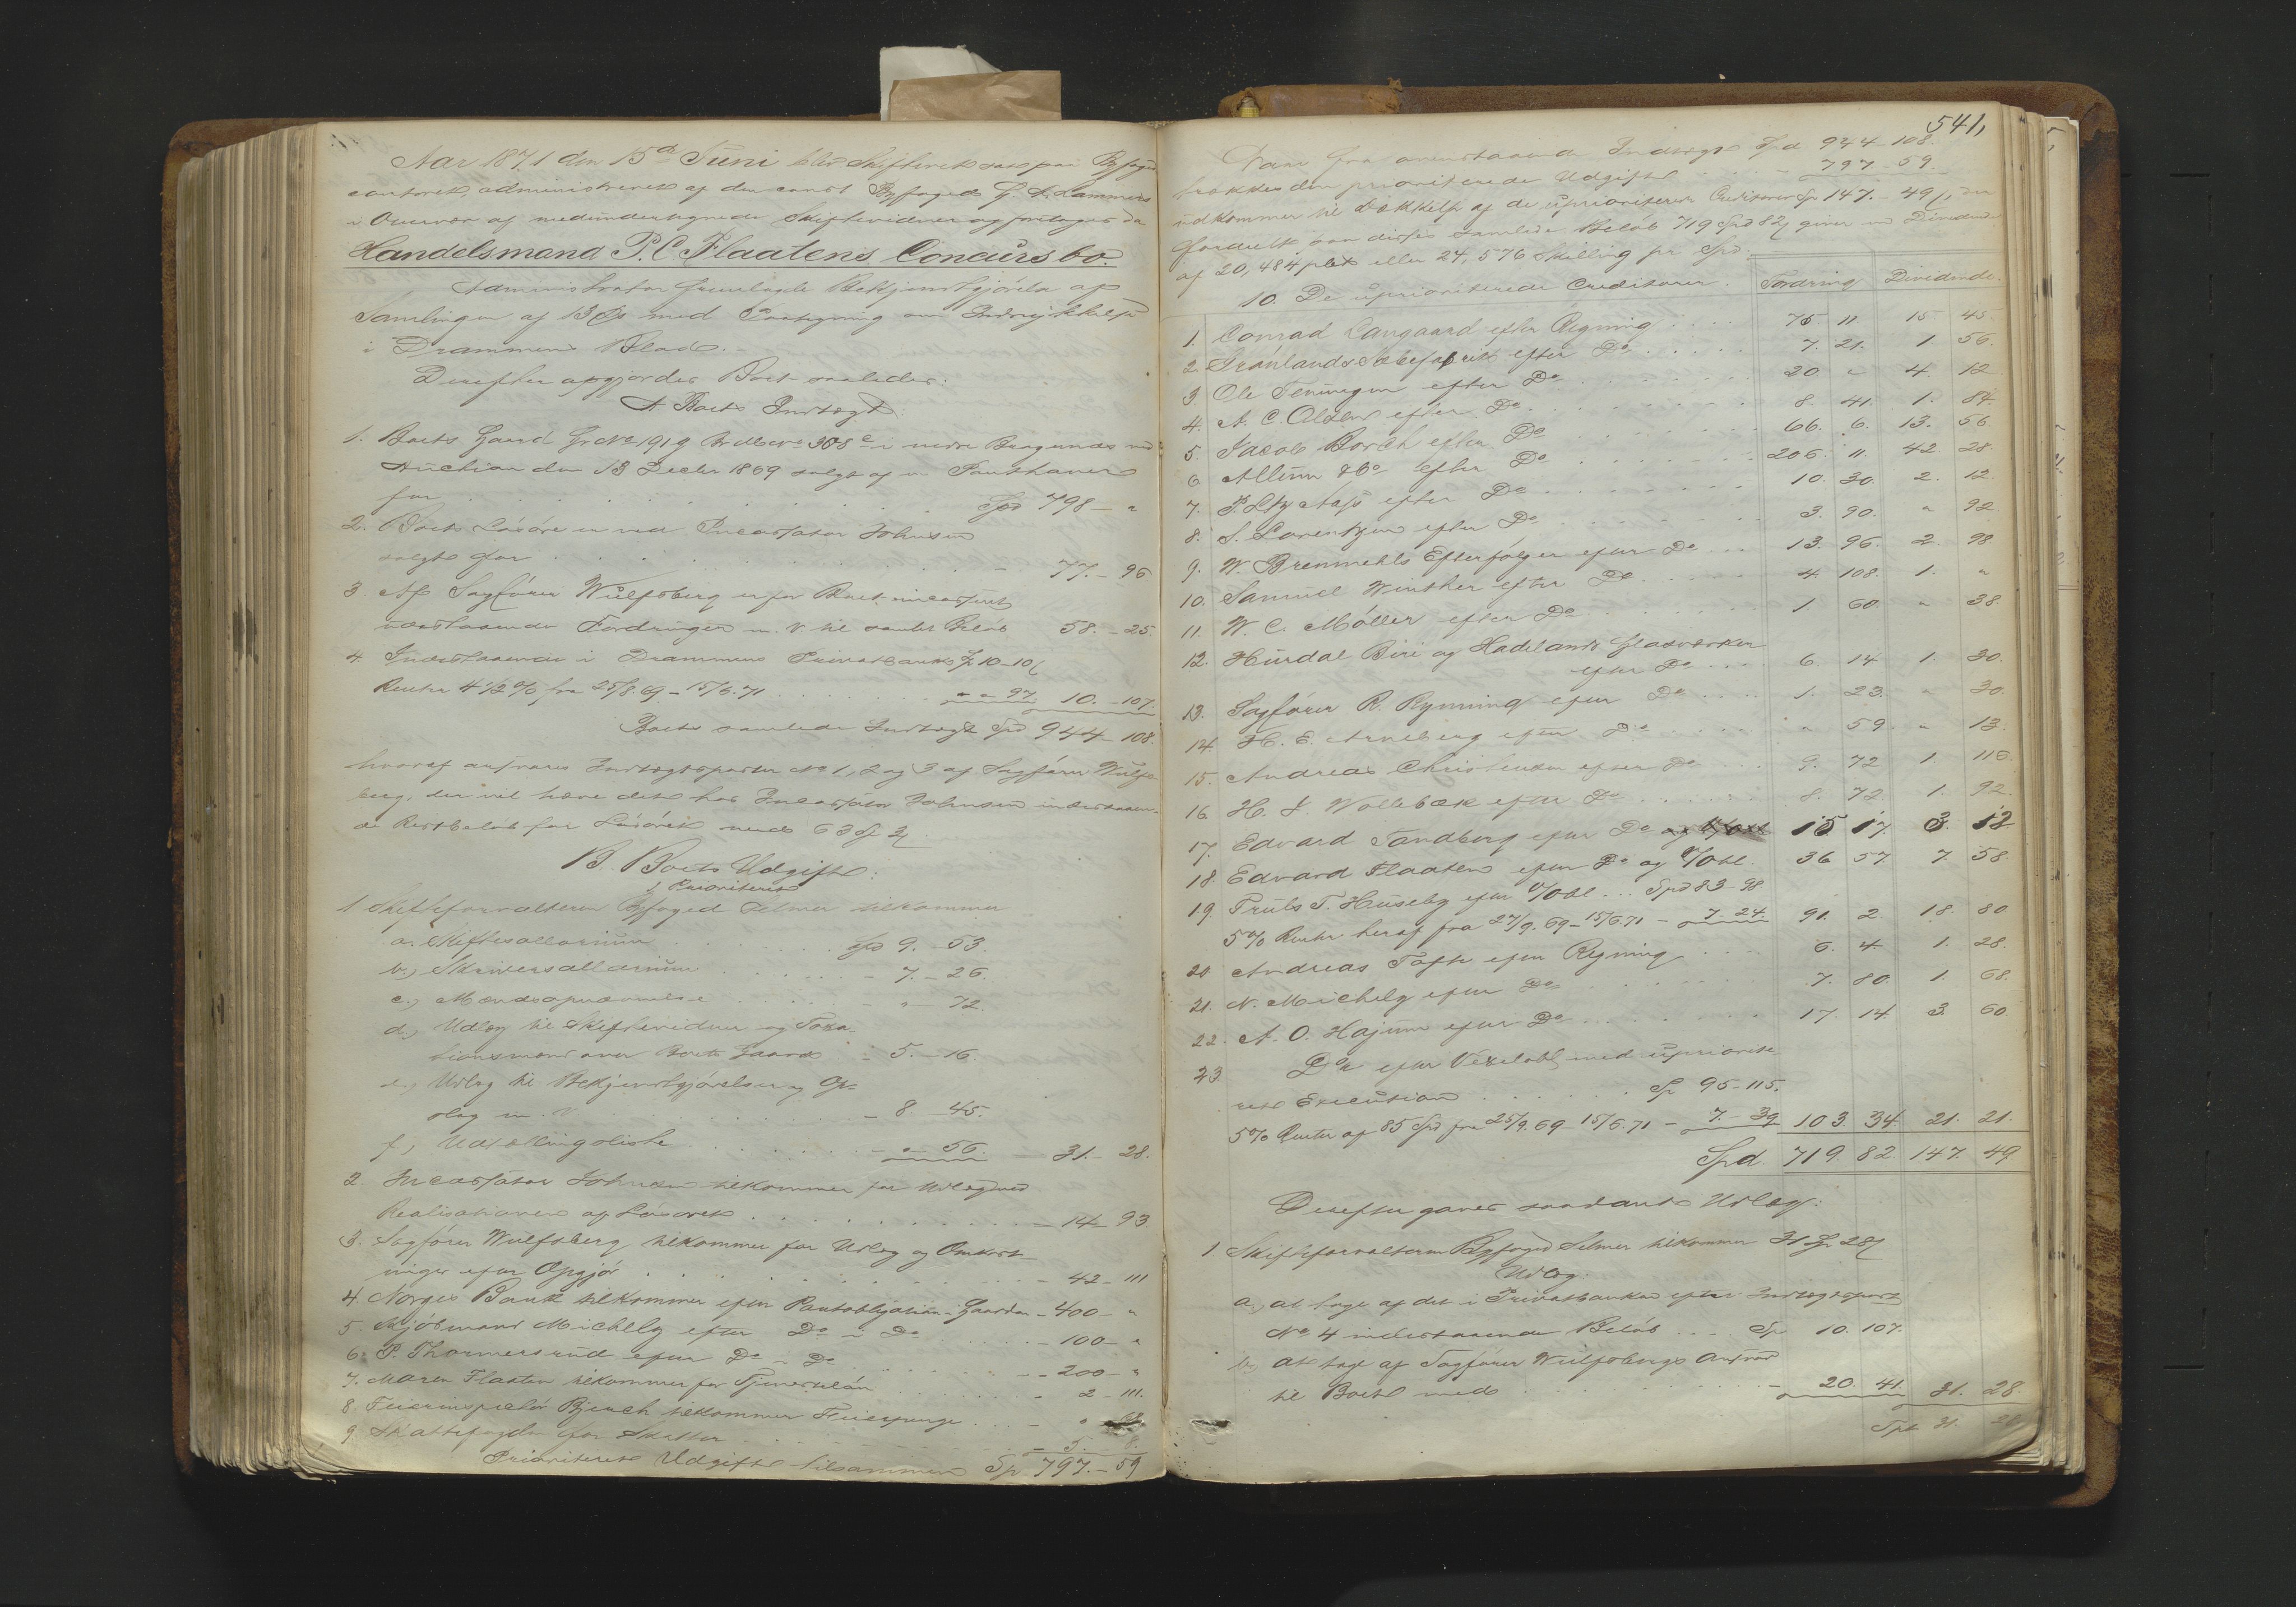 Aar 1871 den 15de Juni blev Skifteret sat paa Byfoged
contoret, administreret af den const Byfoged G. A. Lammers
i Overvær af medundertegnede Skiftevidner og foretoges da
Handelsmand P. C. Flaatens Concursbo.
Administrator fremlagde Bekjendtgjørelse af
Samlingen af 13 ds med Paategning om Indrykkelse
i Drammens Blad.
Derefter opgjordes Boet saaledes:
A. Boets Indtægt:
1. Boets Gaard Gr No 191g Brdb No 308c i nedre Bragernæs ved
Auction den 13 Decbr 1869 solgt af en Panthaver
for . . . Spd 798 - "
2. Boets Løsøre er ved Incassator Johnsen
solgt for . . . - 77. - 96
3. Af Sagfører Wulfsberg er for Boet incasseret
udestaaende Fordringer m. v. til samlet Beløb 58. - 25.
4. Indestaaende i Drammens Privatbank Sp 10 - 10 ß
Renter 4 1/2 % fra 25/8. 69 - 15/6. 71 . . . " " 97 10. - 107.
Boets samlede Indtægt Spd 944 - 108.
hvoraf ansvares Indtægtsposter No 1, 2 og 3 af Sagfører Wulfs-
berg, der vil hæve det hos Incassator Johnsen indestaaen-
de Restbeløb for Løsøret med 63 Sp 3 ß
B. Boets Udgift:
1, Prioriteret
1 Skifteforvalteren Byfoged Selmer tilkommer
a. Skiftesallarium . . . Spd 9. - 53.
b., Skriversallarium . . . - 7. - 26.
c., Mandsopnævnelse . . . - " - 72.
d., Udlæg til Skiftevidner og Taxa-
tionsmænd over Boets Gaard - 5. - 16.
e., Udlæg til Bekjendtgjørelser og Op-
slag m. V. . . . - 8. - 45.
f., Udtællingsliste . . . - " - 56. - 31. - 28.
2. Incassator Johnsen tilkommer for Udlæg ved
Realisationen af Løsøret . . . - 14 - 93
3. Sagfører Wulfsberg tilkommer for Udlæg og Omkost-
ninger efter Opgjør . . . - 42 - 111
4. Norges Bank tilkommer efter Pantobligation i Gaarden - 400 - "
5. Kjøbmand Michelz efter Do i Do . . . - 100 - "
6. P. Thormersrud efter Do i Do . . . - 200 - "
7. Maren Flaaten tilkommer for Tjenerløn . . . - 2 - 111.
8. Feierinspectør Bjerch tilkommer Feierpenge . . . - "
9. Skattefogden for Skatter . . . - 5.
Prioriteret Udgift tilsammen Sp 797. - 59
541,
Naar fra ovenstaaende Indtægt Spd 944 - 108.
trækkes den prioriterede Udgift . . . - 797 - 59.
udkommer til Dækkelse af de uprioriterede Creditorer Sp 147. - 49 ß, der
fordelt paa disses samlede Beløb 719 Spd 82 ß giver en Dividende
af 20,484 pCt eller 24,576 Skilling pr Spd.
10. De uprioriterede Creditorer. Fordring Dividende.
1. Conrad Langaard efter Regning . . . 75 11 15 45.
2. Grønlands Sæbefabrik efter Do . . . 7. 21. 1 56.
3. Ole Temmingen efter Do . . . 20. " 4. 12
4. A. C. Olsen efter Do . . . 8. 41. 1. 84.
5. Jacob Borch efter Do . . . 66. 6. 13. 56
6 Allum & Co efter Do . . . 206. 11. 42 28.
7. P. Ltz Aass efter Do . . . 10. 30. 2. 12.
8. S. Lorentzen efter Do . . . 3. 90. " 92
9. W. Bremmehls Efterfølger efter Do . . . 13. 96. 2. 98
10. Samuel Winther efter Do . . . 4. 108. 1. "
11. W. C. Møller efter Do . . . 1. 60. " 38.
12. Hurdal Biri og Hadelands Glasværker
efter Do . . . 6. 14 1. 30.
13. Sagfører R. Rynning efter Do . . . 1. 23. " 30.
14. H. E. Arneberg efter Do . . . " 59. " 13.
15. Andreas Christensen efter Do . . . 9. 72 1. 116
16. H. J. Wollebæk efter Do . . . 8. 72. 1. 92.
17. Edvard Sandberg efter Do 15 17. 3. 12
18. Edvard Flaaten efter Do og V/obl. 36 57. 7. 58.
19. Truls T. Huseby efter V/obl . . . Spd 83 - 98
5% Renter heraf fra 27/9. 69 - 15/6. 71 - 7. 24. 91. 2. 18. 80
20 Andreas Tofte efter Regning . . . 6. 4. 1. 28.
21. N. Michelz efter Do . . . 7. 80. 1. 68.
22. A. O. Hajum efter Do . . . 17. 14. 3. 60
23. Do efter Vexelobl. med uprioritet
ret Execution . . . Sp 95 - 115.
5% Renter af 85 Spd fra 25/9. 69 - 15/6. 71 - 7. - 39 103. 34 21. 21.
Spd. 719. 82 147. 49
Derefter gaves saadant Udlæg:
1 Skifteforvalteren Byfoged Selmer tilkommer 31 Sp 28 ß
Udlæg:
a., at tage af det i Privatbanken efter Indtægtspost
No 4 indestaaende Beløb . . . Sp 10. 107.
b., at tage af Sagfører Wulfsbergs Ansvar
til Boet med . . . - 20. 41. 31. 28.
Spd 31. 28